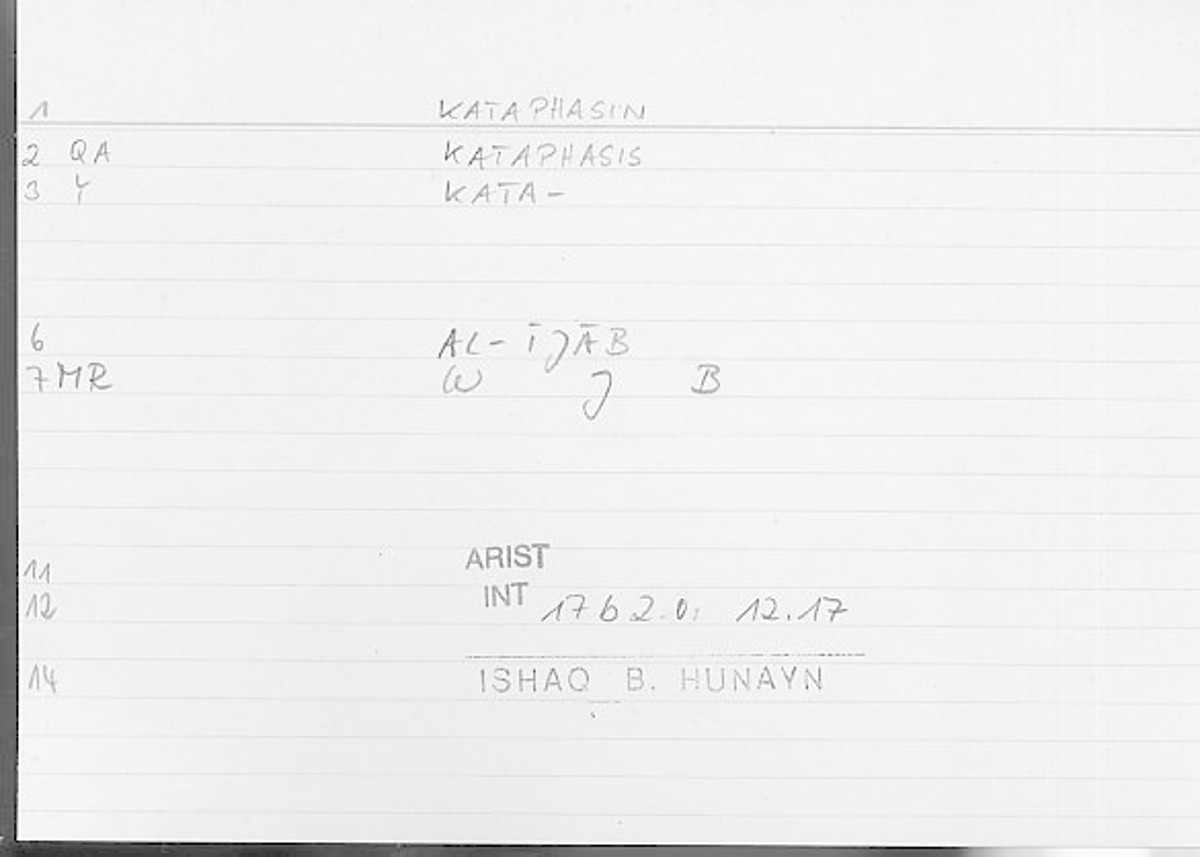 1 KATAPHASIN
2 QA KATAPHASIS
3 Y KATA-
6 AL-ĪJĀB
7 MR W J B
11 ARIST
12 INT 17b20; 12.17
14 ISHAQ B. HUNAYN